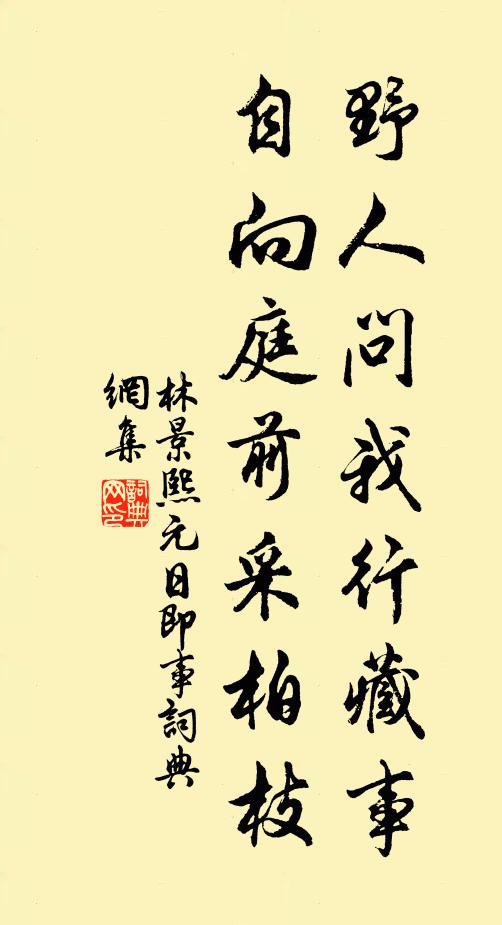 野人問我行藏事
自向庭前采柏枝
林景熙元日即事詞典
網集
詞典
网印